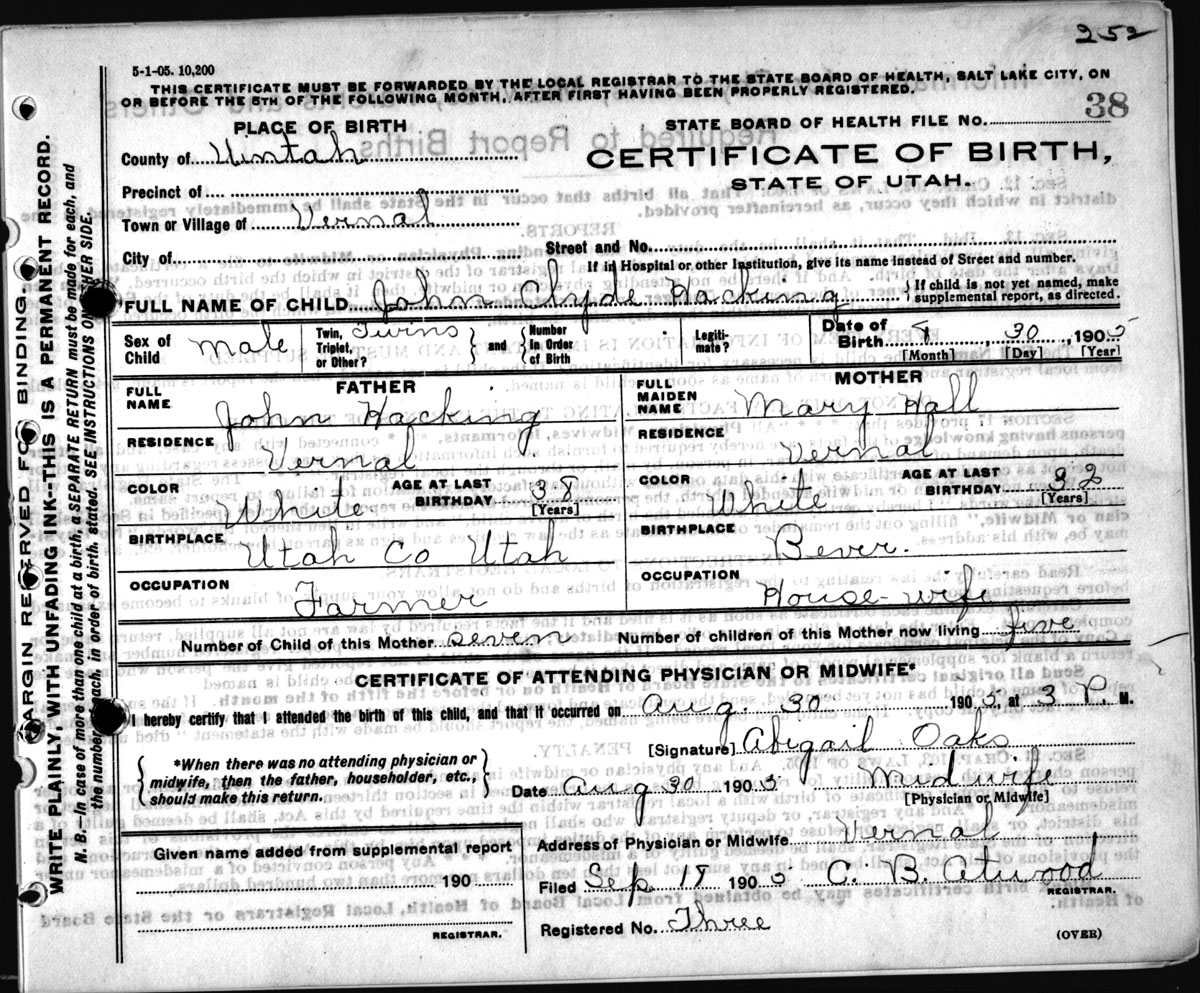 252
5-1-05. 10,200
THIS CERTIFICATE MUST BE FORWARDED BY THE LOCAL REGISTRAR TO THE STATE BOARD OF HEALTH, SALT LAKE CITY, ON
OR BEFORE THE 5TH OF THE FOLLOWING MONTH, AFTER FIRST HAVING BEEN PROPERLY REGISTERED.
PLACE OF BIRTH
STATE BOARD OF HEALTH FILE NO. 38
County of Uintah
CERTIFICATE OF BIRTH,
STATE OF UTAH.
Precinct of
Town or Village of Vernal
City of Street and No.
If in Hospital or other Institution, give its name instead of Street and number.
FULL NAME OF CHILD John Clyde Hacking { If child is not yet named, make supplemental report, as directed.
Sex of Child Male Twin, Triplet, or Other? Twins } and { Number In Order of Birth Legitimate? Date of Birth 8, 30, 1905
[Month] [Day] [Year]
FATHER
FULL NAME John Hacking
RESIDENCE Vernal
COLOR White AGE AT LAST BIRTHDAY 38 [Years]
BIRTHPLACE Utah Co Utah
OCCUPATION Farmer
MOTHER
FULL MAIDEN NAME Mary Hall
RESIDENCE Vernal
COLOR White AGE AT LAST BIRTHDAY 32 [Years]
BIRTHPLACE Bever.
OCCUPATION House-wife
Number of Child of this Mother seven Number of children of this Mother now living five
CERTIFICATE OF ATTENDING PHYSICIAN OR MIDWIFE*
I hereby certify that I attended the birth of this child, and that it occurred on Aug. 30 1905, at 3 P. M.
*When there was no attending physician or
midwife, then the father, householder, etc.,
should make this return.
[Signature] Abigail Oaks
Date Aug 30 1905 Midwife
[Physician or Midwife]
Address of Physician or Midwife Vernal
Given name added from supplemental report
190
REGISTRAR.
Filed Sep 18 1905 C. B. Atwood
REGISTRAR.
Registered No. Three
(OVER)
MARGIN RESERVED FOR BINDING.
WRITE PLAINLY, WITH UNFADING INK--THIS IS A PERMANENT RECORD.
N. B.--In case of more than one child at a birth, a SEPARATE RETURN must be made for each, and
the number each, in order of birth, stated. SEE INSTRUCTIONS ON OTHER SIDE.